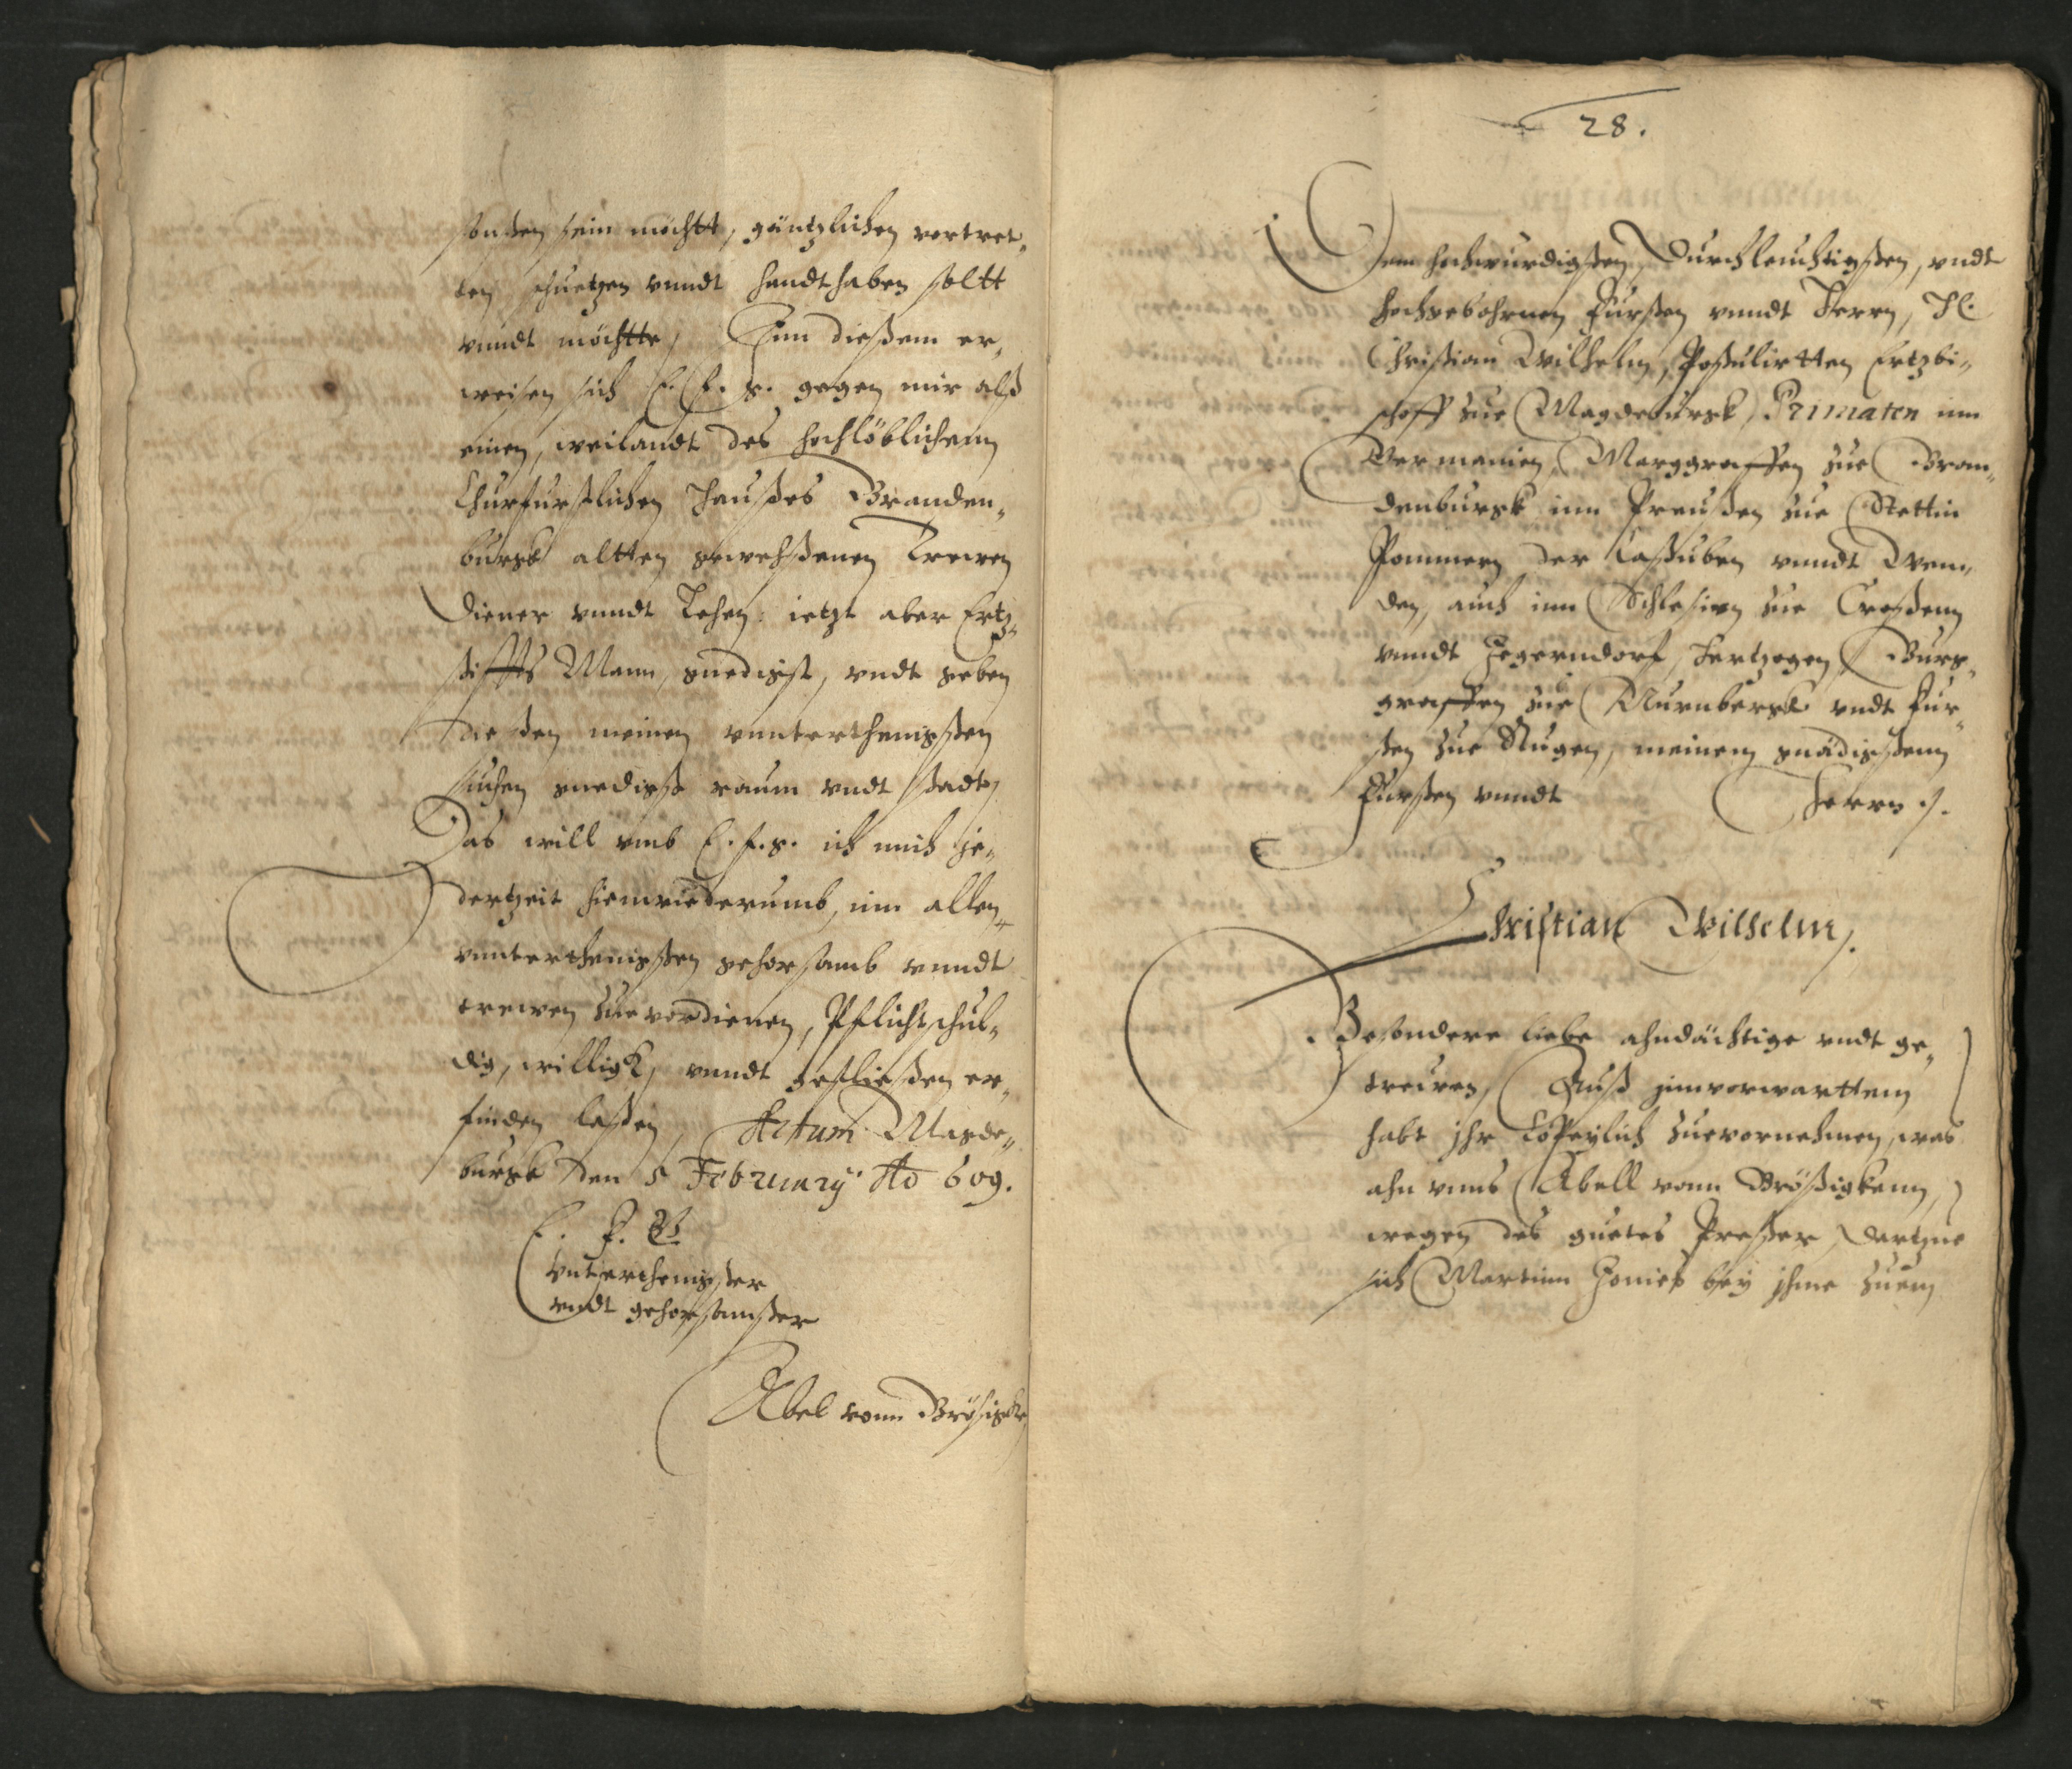 sonsten sein möchtt, gäntzlichen vertret„
ten schuetzen vnndt handthaben soltt
vnndt möchtte, Inn diesem er„
weisen sich E. F. g. gegen mir alß
einen, weilandt des hochlöblichenn
Churfurstlichen Haußes Branden„
burgk altten gewehsenen Trewen
Diener vnndt Lehen: ietzt aber Ertz„
stiffts Mann, gnedigst, vndt geben
die den meinen vnnterthenigsten
suchen gnedigst raum vndt stadt,
Das will vmb E. F. g. ich mich je„
dertzeit hienwiederumb, inn allen
vnnterthenigsten gehorsamb vnndt
trewen zue vordienen, Pflichtschul„
dig, willigk, vnndt gefließen er„
finden laßen, Actum Magde„
burgk den 5 February Ao 609.
E. F. G.
Vnterthenigster
vndt gehorsamster
Abel vonn Brösigke
28.
Dem hochwurdigsten, Durchleuchtigsten, vndt
Hochgebohrnen Fursten vnndt Herrn, H.
Christian Wilhelm, Postulirtten Ertzbi„
schoff zue Magdeburgk, Primaten inn
Germanien, Marggraffen zue Bran„
denburgk inn Preußen zue Stettin
Pommern der Cassuben vnndt Wen„
den, auch inn Schlesien zue Croßenn
vnndt Jegerndorf, Hertzogen, Burg„
graffen zue Nurnbergk vndt Fur„
sten zue Rugen, meinem gnädigstenn
Fursten vnndt Herrn ./.
Christian Wilhelm,.
Besondere liebe ahndächtige vndt ge„
trewen, Auß innvorwarttem
habt jhr Copeylich zuevornehmen, was
ahn vnns Abell vonn Brößigkenn,
wegen des guetes Preßer, dartzue
sich Martinn Honieß bey jhme zuem